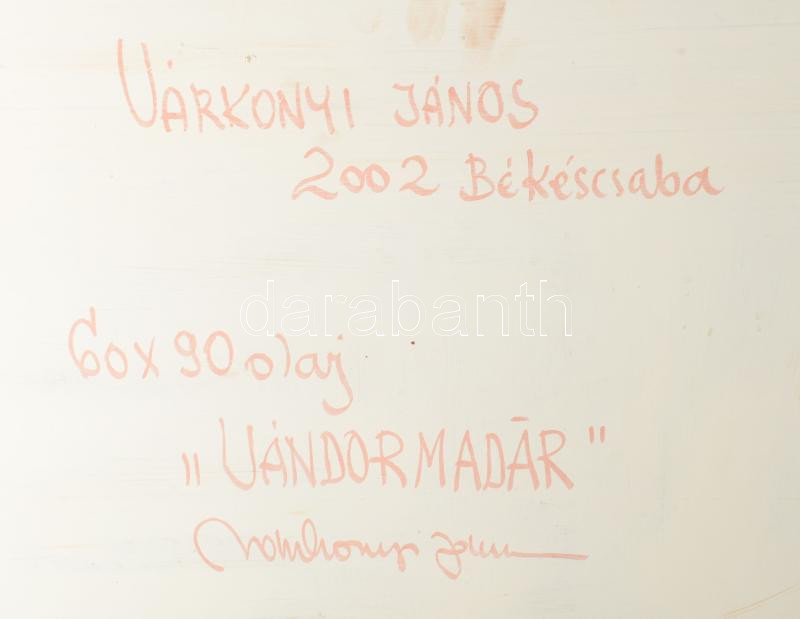 VÁRKONYI JÁNOS
2002 Békéscsaba
darabanth
60x90 olaj
„VÁNDORMADÁR"
Várkonyi János